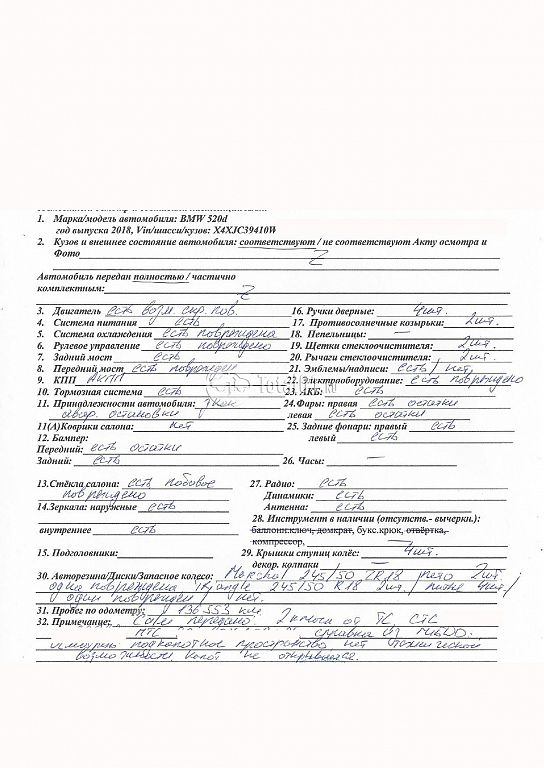 1. Марка/модель автомобиля: BMW 520d
год выпуска 2018, Vin/шасси/кузов: X4XJC39410W
2. Кузов и внешнее состояние автомобиля: соответствуют / не соответствуют Акту осмотра и
Фото
Автомобиль передан полностью / частично
комплектным:
3. Двигатель есть возм. скр. пов. 16. Ручки дверные: 4шт.
4. Система питания есть 17. Противосолнечные козырьки: 2шт.
5. Система охлаждения есть повреждена 18. Пепельницы: —
6. Рулевое управление есть повреждено 19. Щетки стеклоочистителя: 2шт.
7. Задний мост есть 20. Рычаги стеклоочистителя: 2шт.
8. Передний мост есть поврежден 21. Эмблемы/надписи: есть / нет,
9. КПП АКПП 22. Электрооборудование: есть повреждено
10. Тормозная система есть 23. АКБ: есть
11. Принадлежности автомобиля: знак 24.Фары: правая есть остатки
авар. остановки левая есть остатки
11(А)Коврики салона: нет 25. Задние фонари: правый есть
12. Бампер: левый есть
Передний: есть остатки
Задний: есть 26. Часы: —
13.Стёкла салона: есть лобовое 27. Радио: есть
повреждено Динамики: есть
14.Зеркала: наружные есть Антенна: есть
28. Инструмент в наличии (отсутств.- вычеркн.):
внутреннее есть баллонн.ключ, домкрат, букс.крюк, отвёртка,
компрессор,
15. Подголовники: 29. Крышки ступиц колёс: 4шт.
декор. колпаки —
30. Авторезина/Диски/Запасное колесо: Marshal 245/50 ZR18 лето 2шт
одна повреждена Triangle 245/50 R18 2шт / литые 4шт /
1 один поврежден / нет.
31. Пробег по одометру: 136 553 км
32. Примечание: передано. 2 ключа от ТС СТС
ПТС справка от МВД.
подкапотное пространство нет технической
возможности капот не открывается.